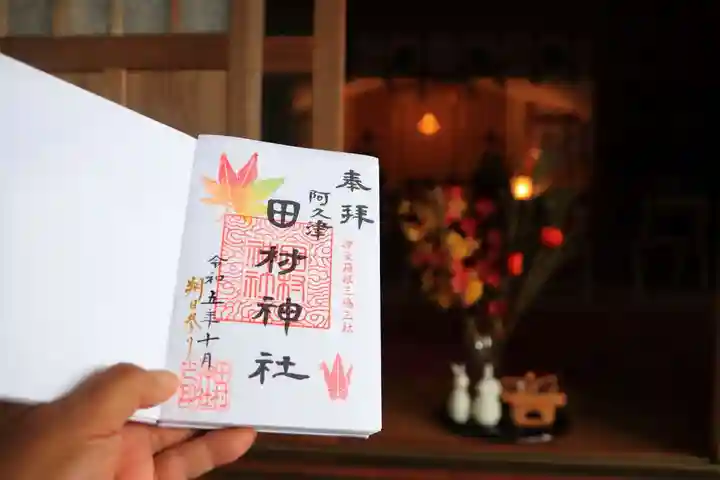 奉拝
阿久津
田村神社
令和五年十月
朔日参り